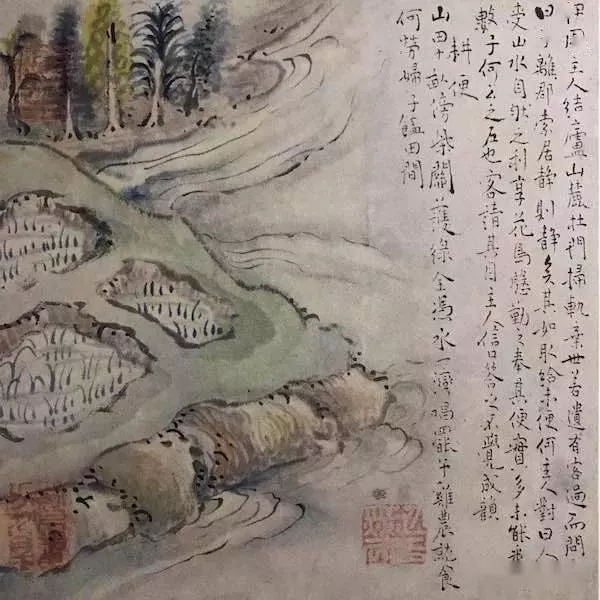 伊園主人結廬山麓杜門掃軌棄世若遺有客過而問
曰子離群索居靜則靜矣其如取給未便何主人對曰余
受山水自然之利享花鳥慇懃之奉其便實多未能悉
數子何云之左也客請其目主人信口答之不覺成韻
耕便
山田十畝傍柴關護綠全憑水一灣唱罷午雞農就食
何勞婦子饁田間